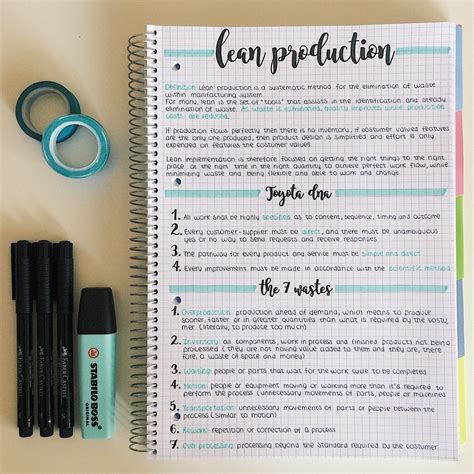 lean production
Definition: Lean production is a systematic method for the elimination of waste
within manufacturing system.
For many, lean is the set of "tools" that assists in the identification and steady
elimination of waste. As waste is eliminated, quality improves while production
costs are reduced.
If production flows perfectly then there is no inventory; if costumer valued features
are the only one produced, then product design is simplified and effort is only
expended on features the costumer values.
Lean implementation is therefore focused on getting the right things to the right
place at the right time in the right quantity to achieve perfect work flow, while
minimizing waste and being flexible and able to work and change.
Toyota dna
1. All work shall be highly specified as to content, sequence, timing and outcome
2. Every costumer-supplier must be direct, and there must be unambiguous
yes or no way to send requests and receive responses.
3. The pathway for every product and service must be simple and direct
4. Every improvement must be made in accordance with the scientific method
the 7 wastes
1. Overproduction: production ahead of demand, which means to produce
sooner, faster or in greater quantities than what is required by the costu
mer (literally, to produce too much)
2. Inventory: all components, work in process and finished products not being
processed (they are not having value added to them and they are, there
fore, a waste of space and money)
3. Waiting: people or parts that wait for the work cycle to be completed
4. Motion: people or equipment moving or walking more than it's required to
perform the process (unnecessary movements of parts, people or machines
5. Transportation: unnecessary movements of parts or people between the
process (Similar to motion)
6. Rework: repetition or correction of a process
7. Over processing: processing beyond the standard required by the costumer
STABILO BOSS
ORIGINAL
FABER-CASTELL
FABER-CASTELL
FABER-CASTELL